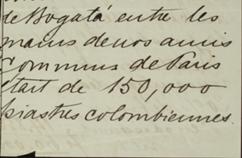 de Bogatá entre les
mains de nos amis
Communs de Paris
tant de 150,000
piastres colombiennes.